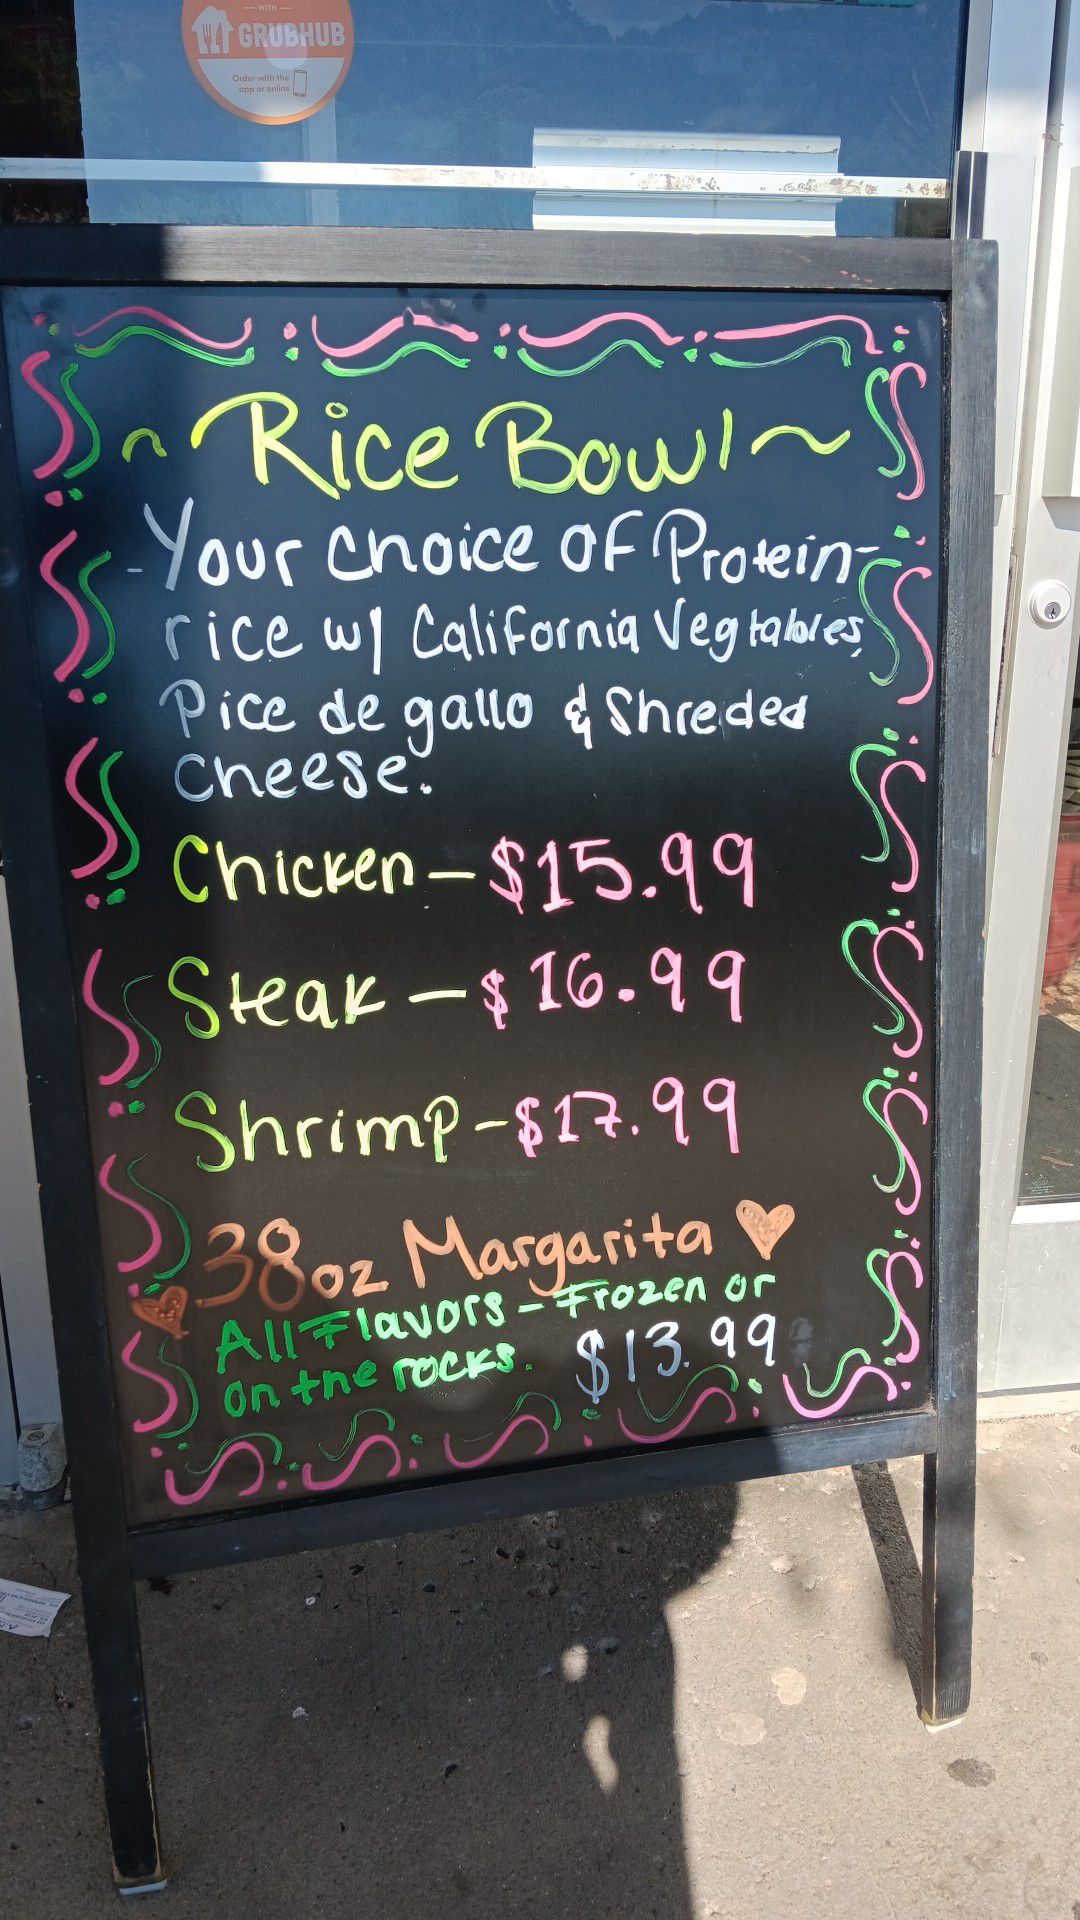 WITH
GRUBHUB
Order with the
app or online
~Rice Bowl~
-Your choice of Protein-
rice w/ California Vegtables,
Pice de gallo & Shreded
Cheese.
Chicken-$15.99
Steak-$16.99
Shrimp-$17.99
38oz Margarita ♥
All Flavors-Frozen or
on the rocks. $13.99